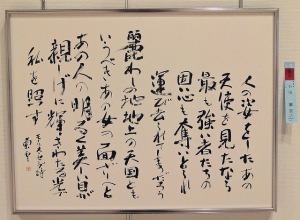 人の姿をしたあの
天使を見たなら
最も強い者たちの
固い心も奪いとられ
運び去られてしまうだろう
地上の天国とも
いうべきあの女の面ざしへと
あの人の明るく美しい息が
親しげに輝きわたる
私を照す